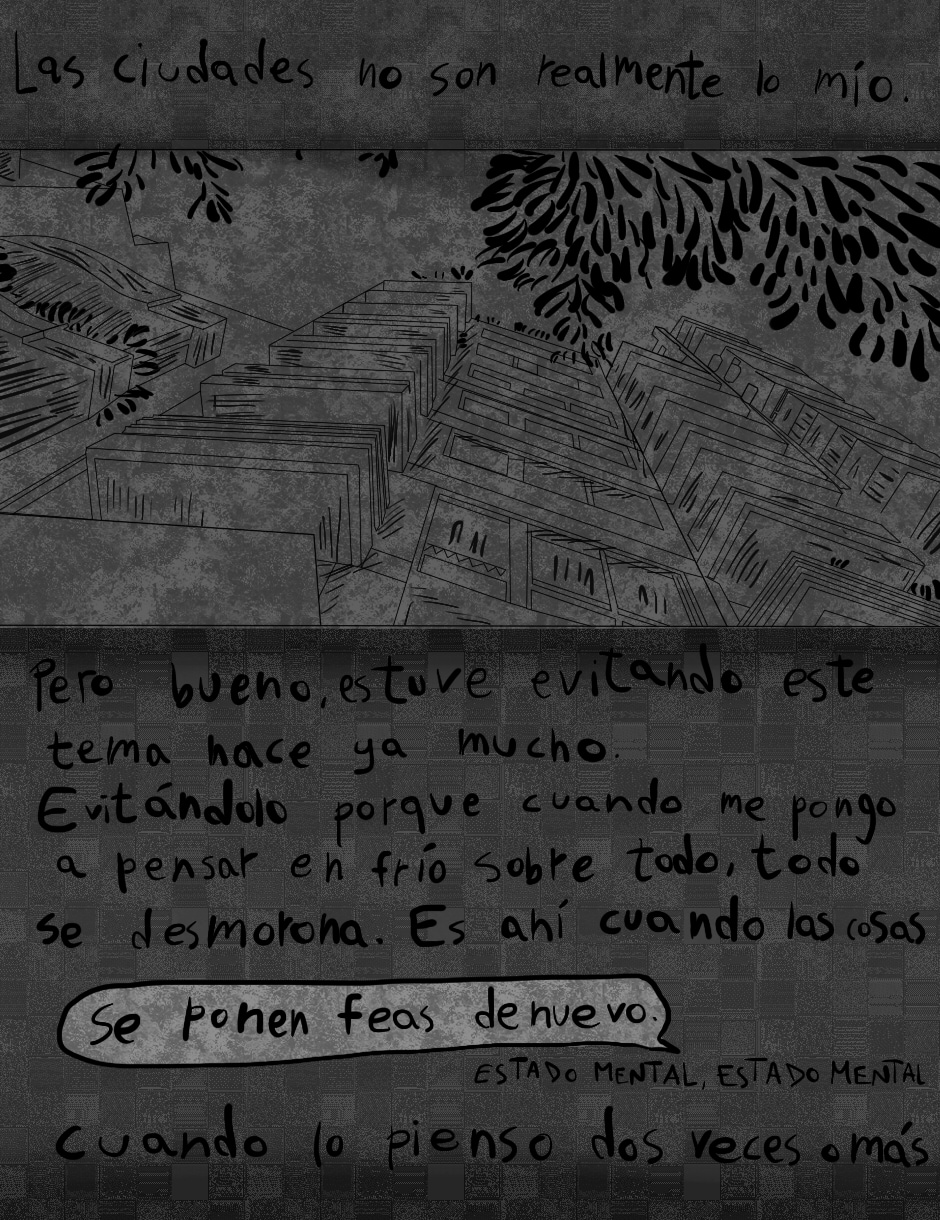 Las ciudades no son realmente lo mío.
Pero bueno, estuve evitando este
tema hace ya mucho.
Evitándolo porque cuando me pongo
a pensar en frío sobre todo, todo
se desmorona. Es ahí cuando las cosas
Se ponen feas de nuevo.
ESTADO MENTAL, ESTADO MENTAL
Cuando lo pienso dos veces o más